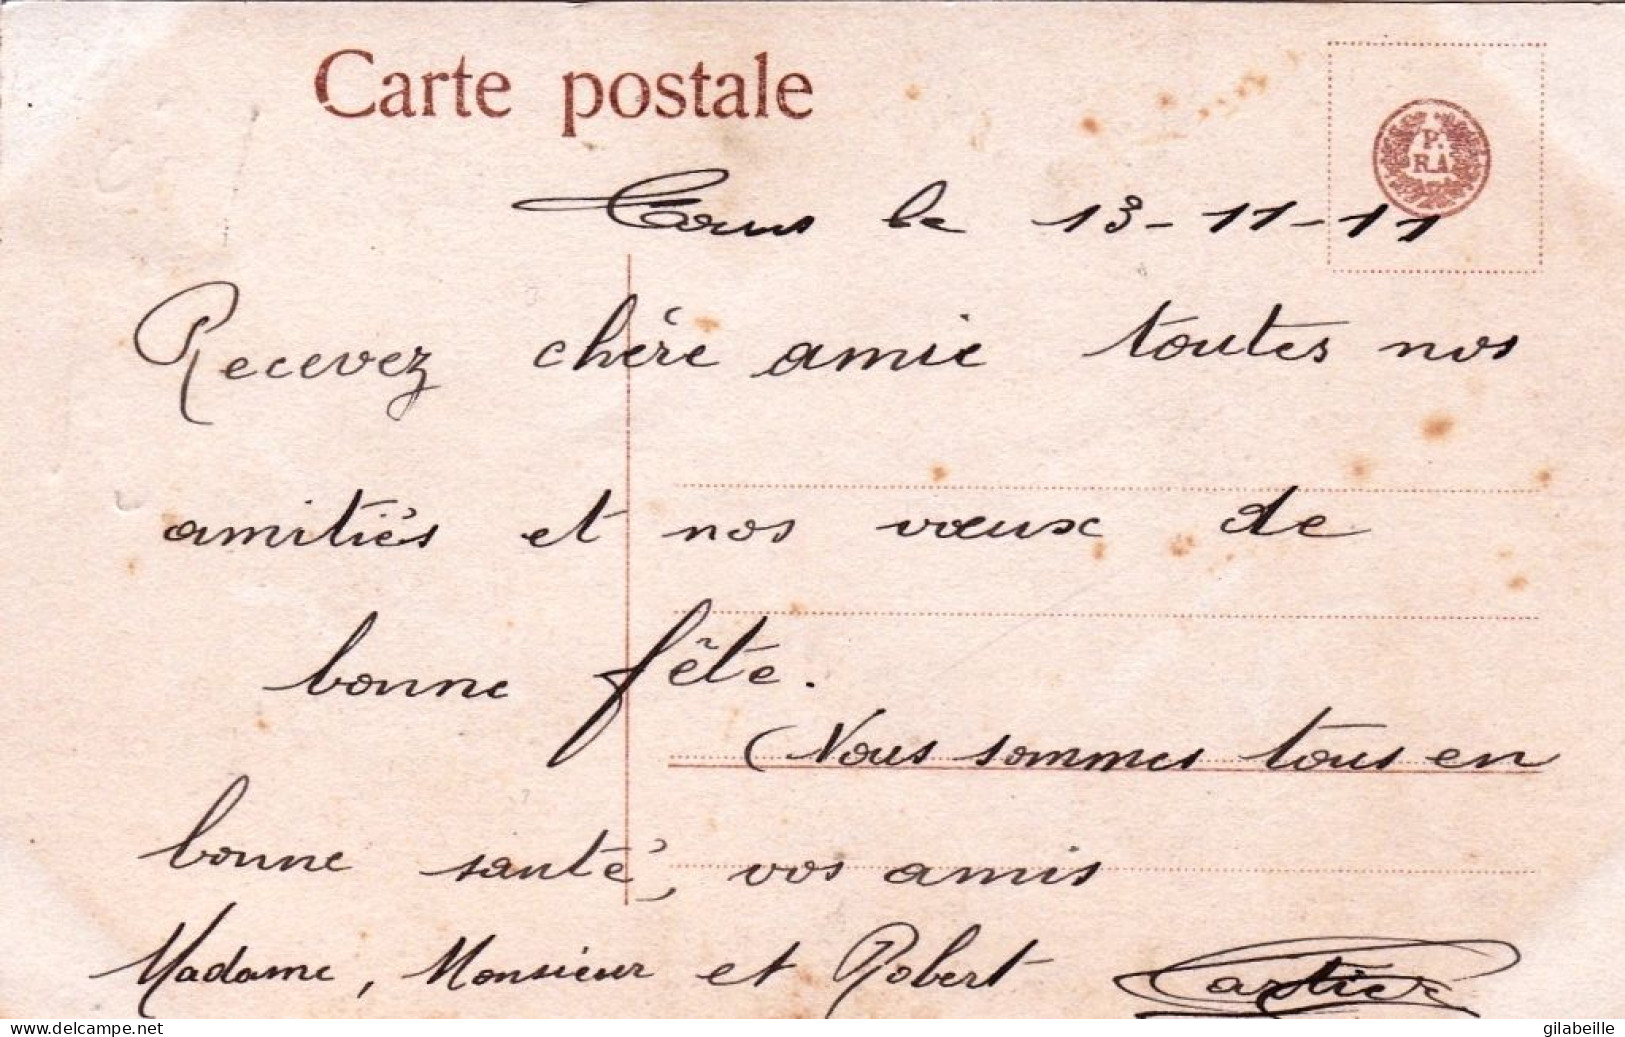 Carte postale
P.
R.A
Tours le 13-11-11
Recevez chère amie toutes nos
amitiés et nos vœux de
bonne fête.
(Nous sommes tous en
bonne santé, vos amis
Madame, Monsieur et Robert Cartier
www.delcampe.net
gilabeille